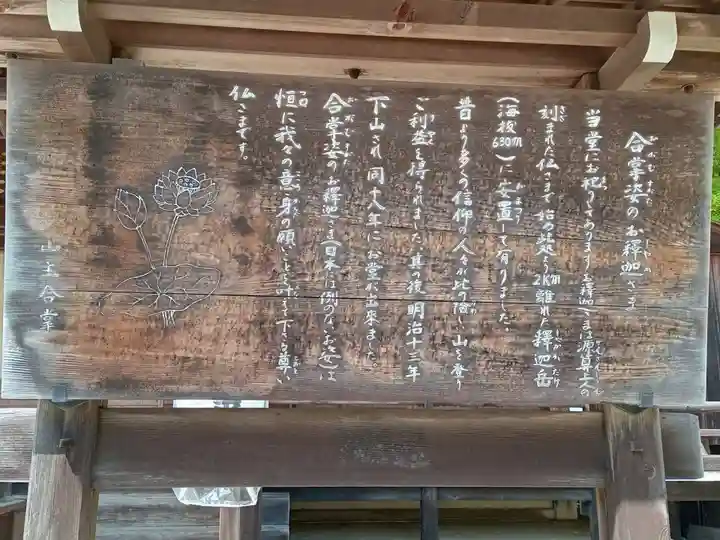 合掌姿のお釋迦さま
当堂にお祀りしてあります お釋迦さまは源算上人の
刻まれた仏さまで 始め 2Km離れ 釋迦岳
(海抜630m)に安置して有りました。
昔より多くの信仰の人々が此の険しい山を登り
ご利益を得られました。其の後明治十三年
下山され 同十八年にお堂が出来ました。
合掌姿のお釋迦さま(日本に例のないお姿)は
恒に我々の意 身の願いごとを叶えて下さる尊い
仏さまです。
山主合掌